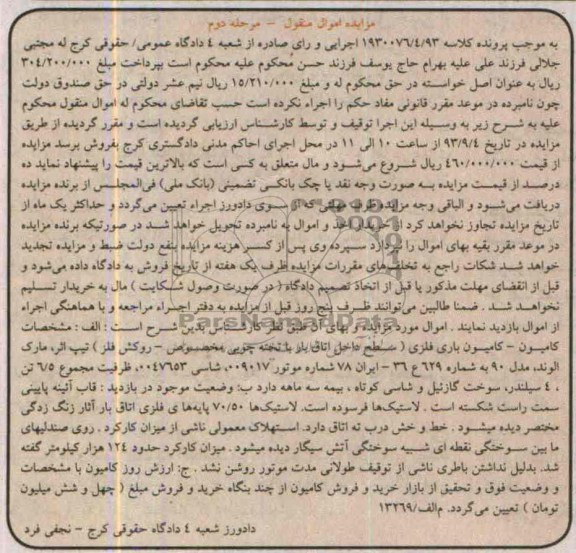 مزایده اموال منقول - مرحله دوم
به موجب پرونده کلاسه ۱۹۳۰۰۷۶/۴/۹۳ اجرایی و رای صادره از شعبه ۴ دادگاه عمومی/ حقوقی کرج له مجتبی
جلالی فرزند علی علیه بهرام حاج یوسف فرزند حسن محکوم علیه محکوم است بپرداخت مبلغ ۳۰۴/۲۰۰/۰۰۰
ریال به عنوان اصل خواسته در حق محکوم له و مبلغ ۱۵/۲۱۰/۰۰۰ ریال نیم عشر دولتی در حق صندوق دولت
چون نامبرده در موعد مقرر قانونی مفاد حکم را اجراء نکرده است حسب تقاضای محکوم له اموال منقول محکوم
علیه به شرح زیر به وسیله این اجرا توقیف و توسط کارشناس ارزیابی گردیده است و مقرر گردیده از طریق
مزایده در تاریخ ۹۳/۹/۴ از ساعت ۱۰ الی ۱۱ در محل اجرای احکام مدنی دادگستری کرج بفروش برسد مزایده
از قیمت ۴۶۰/۰۰۰/۰۰۰ ریال شروع می‌شود و مال متعلق به کسی است که بالاترین قیمت را پیشنهاد نماید ده
درصد از قیمت مزایده به صورت وجه نقد یا چک بانکی تضمینی (بانک ملی) فی‌المجلس از برنده مزایده
دریافت می‌شود و الباقی وجه مزایده ظرف مهلتی که از سوی دادورز اجراء تعیین می‌گردد و حداکثر یک ماه از
تاریخ مزایده تجاوز نخواهد کرد از اخذ و اموال به نامبرده تحویل خواهد شد در صورتیکه برنده مزایده
در موعد مقرر بقیه بهای اموال را نپردازد سپرده وی پس از کسر هزینه مزایده بنفع دولت ضبط و مزایده تجدید
خواهد شد شکات راجع به تخلف‌های مقررات مزایده ظرف یک هفته از تاریخ فروش به دادگاه داده می‌شود و
قبل از انقضای مهلت مذکور یا قبل از اتخاذ تصمیم دادگاه (در صورت وصول شکایت) مال به خریدار تسلیم
نخواهد شد . ضمنا طالبین می‌توانند ظرف پنج روز قبل از مزایده به دفتر اجراء مراجعه و با هماهنگی اجراء
از اموال بازدید نمایند . اموال مورد مزایده و بهای آن طبق نظر کارشناس بدین شرح است : الف : مشخصات
کامیون - کامیون باری فلزی ( سطح داخل اتاق بار با تخته چوبی مخصوص - روکش فلز ) تیپ اتر، مارک
الوند، مدل ۹۰ به شماره ۶۲۹ ع ۳۶ - ایران ۷۸ شماره موتور ۰۰۹۰۱۷، شاسی ۰۰۴۷۶۵۳، ظرفیت مجموع ۶/۵ تن
، ۴ سیلندر، سوخت گازئیل و شاسی کوتاه ، بیمه سه ماهه دارد ب: وضعیت موجود در بازدید : قاب آئینه پایینی
سمت راست شکسته است . لاستیک‌ها فرسوده است. لاستیک‌ها ۷۰/۵۰ پایه‌ها ی فلزی اتاق بار آثار زنگ زدگی
مختصر دیده میشود . خط و خش درب ته اتاق دارد. استهلاک معمولی ناشی از میزان کارکرد . روی صندلیهای
ما بین سوختگی نقطه ای شبیه سوختگی آتش سیگار دیده میشود . میزان کارکرد حدود ۱۲۴ هزار کیلومتر گفته
شد. بدلیل نداشتن باطری ناشی از توقیف طولانی مدت موتور روشن نشد . ج: ارزش روز کامیون با مشخصات
و وضعیت فوق و تحقیق از بازار خرید و فروش کامیون از چند بنگاه خرید و فروش مبلغ ( چهل و شش میلیون
تومان ) تعیین می‌گردد. م‌الف/۱۳۲۶۹
دادورز شعبه ۴ دادگاه حقوقی کرج - نجفی فرد